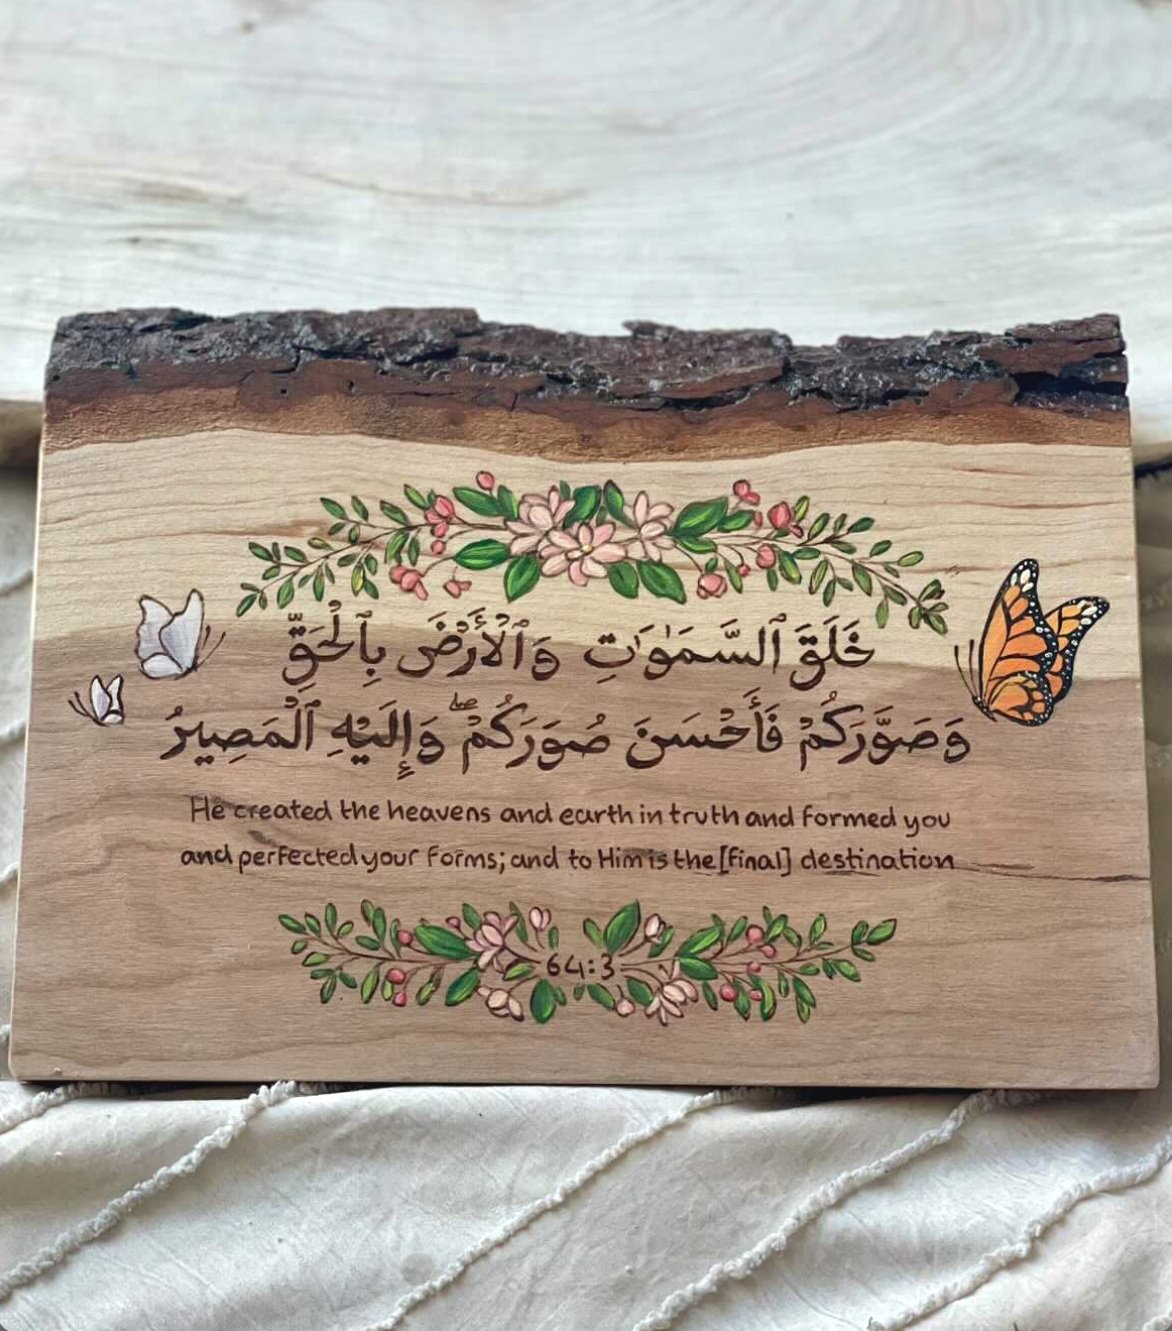 خَلَقَ ٱلسَّمَـٰوَٰتِ وَٱلْأَرْضَ بِٱلْحَقِّ
وَصَوَّرَكُمْ فَأَحْسَنَ صُوَرَكُمْ ۖ وَإِلَيْهِ ٱلْمَصِيرُ
He created the heavens and earth in truth and formed you
and perfected your forms; and to Him is the [final] destination
64:3